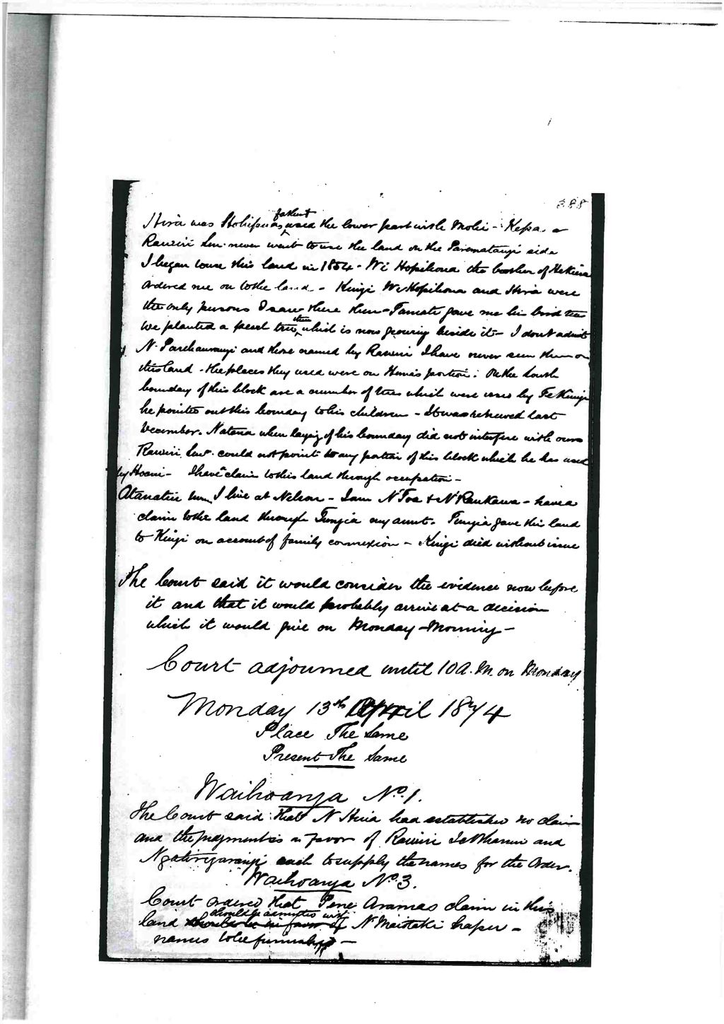 388
Hira was father used the lower part with Mohi - Hepa. &
Rawiri never went to use the land on the side
I began to use this land in 1854 - Wi Hopihona the brother of
ordered me on to the land - Kingi Wi Hopihona and Hira were
the only persons I saw there then - gave me his
we planted a peach tree then which is now growing beside it - I don't admit
N. and those named by Rawiri I have never seen them on
the land - the places they used were on portion. On the South
boundary of this block are a number of trees which were used by Te Kingi
he pointed out this boundary to his children - It was renewed last
December. Natana when laying off his boundary did not interfere with ours
Rawiri could not point to any portion of this block which he has used
by - I have claim to this land through occupation -
I live at Nelson - I am N Toa & N Raukawa - have a
claim to the land through Tungia my aunt. Tungia gave this land
to Kingi on account of family connexion - Kingi died without issue
The Court said it would consider the evidence now before
it and that it would probably arrive at a decision
which it would give on Monday Morning -
Court adjourned until 10 A.M. on Monday
Monday 13th April 1874
Place The Same
Present The Same
Waihoanga No. 1.
The Court said that N Huia had established no claim
and the judgment is in favor of Rawiri Te Whanui and
each to supply the names for the Order.
Waihoanga No. 3.
Court ordered that claim in this
land should be admitted with N
names to be furnished -